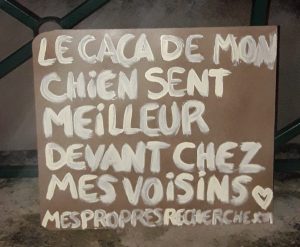 LE CACA DE MON
CHIEN SENT
MEILLEUR
DEVANT CHEZ
MES VOISINS
MESPROPRESRECHERCHE.com